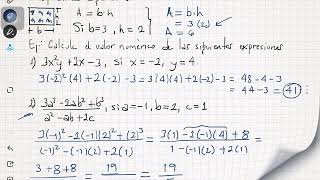 A = b·h
Si b=3, h=2
A = b·h
= 3(2)
A = 6
Ej: Calcule el valor numérico de las siguientes expresiones
1) 3x²y + 2x - 3, si x = -2, y = 4.
3(-2)²(4) + 2(-2) - 3 = 3(4)(4) + 2(-2) - 3 = 48 - 4 - 3
= 44 - 3 = 41
2) 3a² - 2ab + b³ / a² - ab + 2c, si a = -1, b = 2, c = 1
3(-1)² - 2(-1)(2) + (2)³ / (-1)² - (-1)(2) + 2(1) = 3(1) - 2(-1)(2) + 8 / 1 - (-1)(2) + 2(1) =
3 + 8 + 8 = 19 = 19